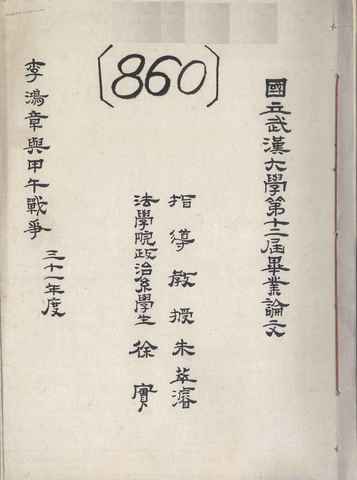 〔860〕
國立武漢大學第十二屆畢業論文
指導教授朱萃濬
法學院政治系學生 徐實
李鴻章與甲午戰爭
三十一年度